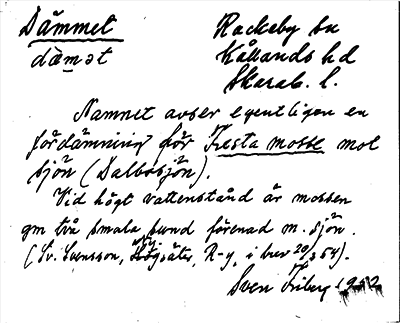 Dämmet
Rackeby sn
dæ̀mət
Kållands hd
Skarab. l.
Namnet avser egentligen en
fördämning för Festa mosse mot
sjön (Dalbosjön).
Vid högt vattenstånd är mossen
gm två smala sund förenad m. sjön.
(Sv. Svensson, Högsäter, R-y, i brev 20/3 54).
Sven Friberg 1952